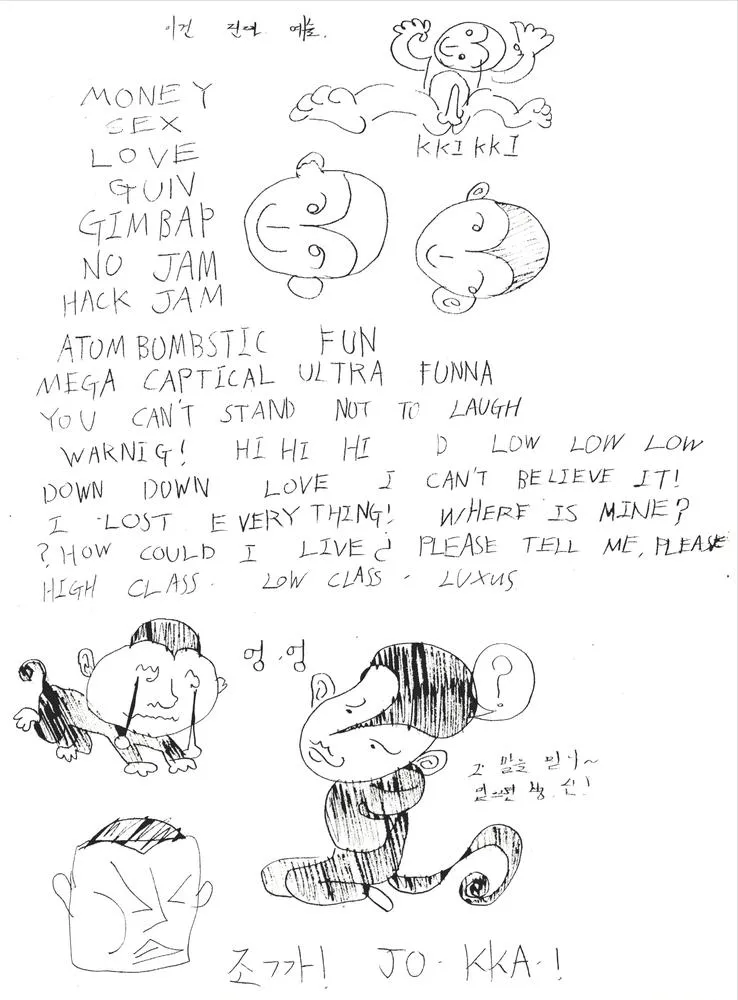 이건 진아 예술.
KKI KKI
MONEY
SEX
LOVE
GUIN
GIMBAP
NO JAM
HACK JAM
ATOM BOMBSTIC FUN
MEGA CAPTICAL ULTRA FUNNA
YOU CAN'T STAND NOT TO LAUGH
WARNIG! HI HI HI D LOW LOW LOW
DOWN DOWN LOVE I CAN'T BELIEVE IT!
I LOST EVERYTHING! WHERE IS MINE?
? HOW COULD I LIVE ¿ PLEASE TELL ME, PLEASE
HIGH CLASS. LOW CLASS. LUXUS
엉.엉
?
그 말을 믿니~
믿으면 병.신!
조까! JO.KKA.!